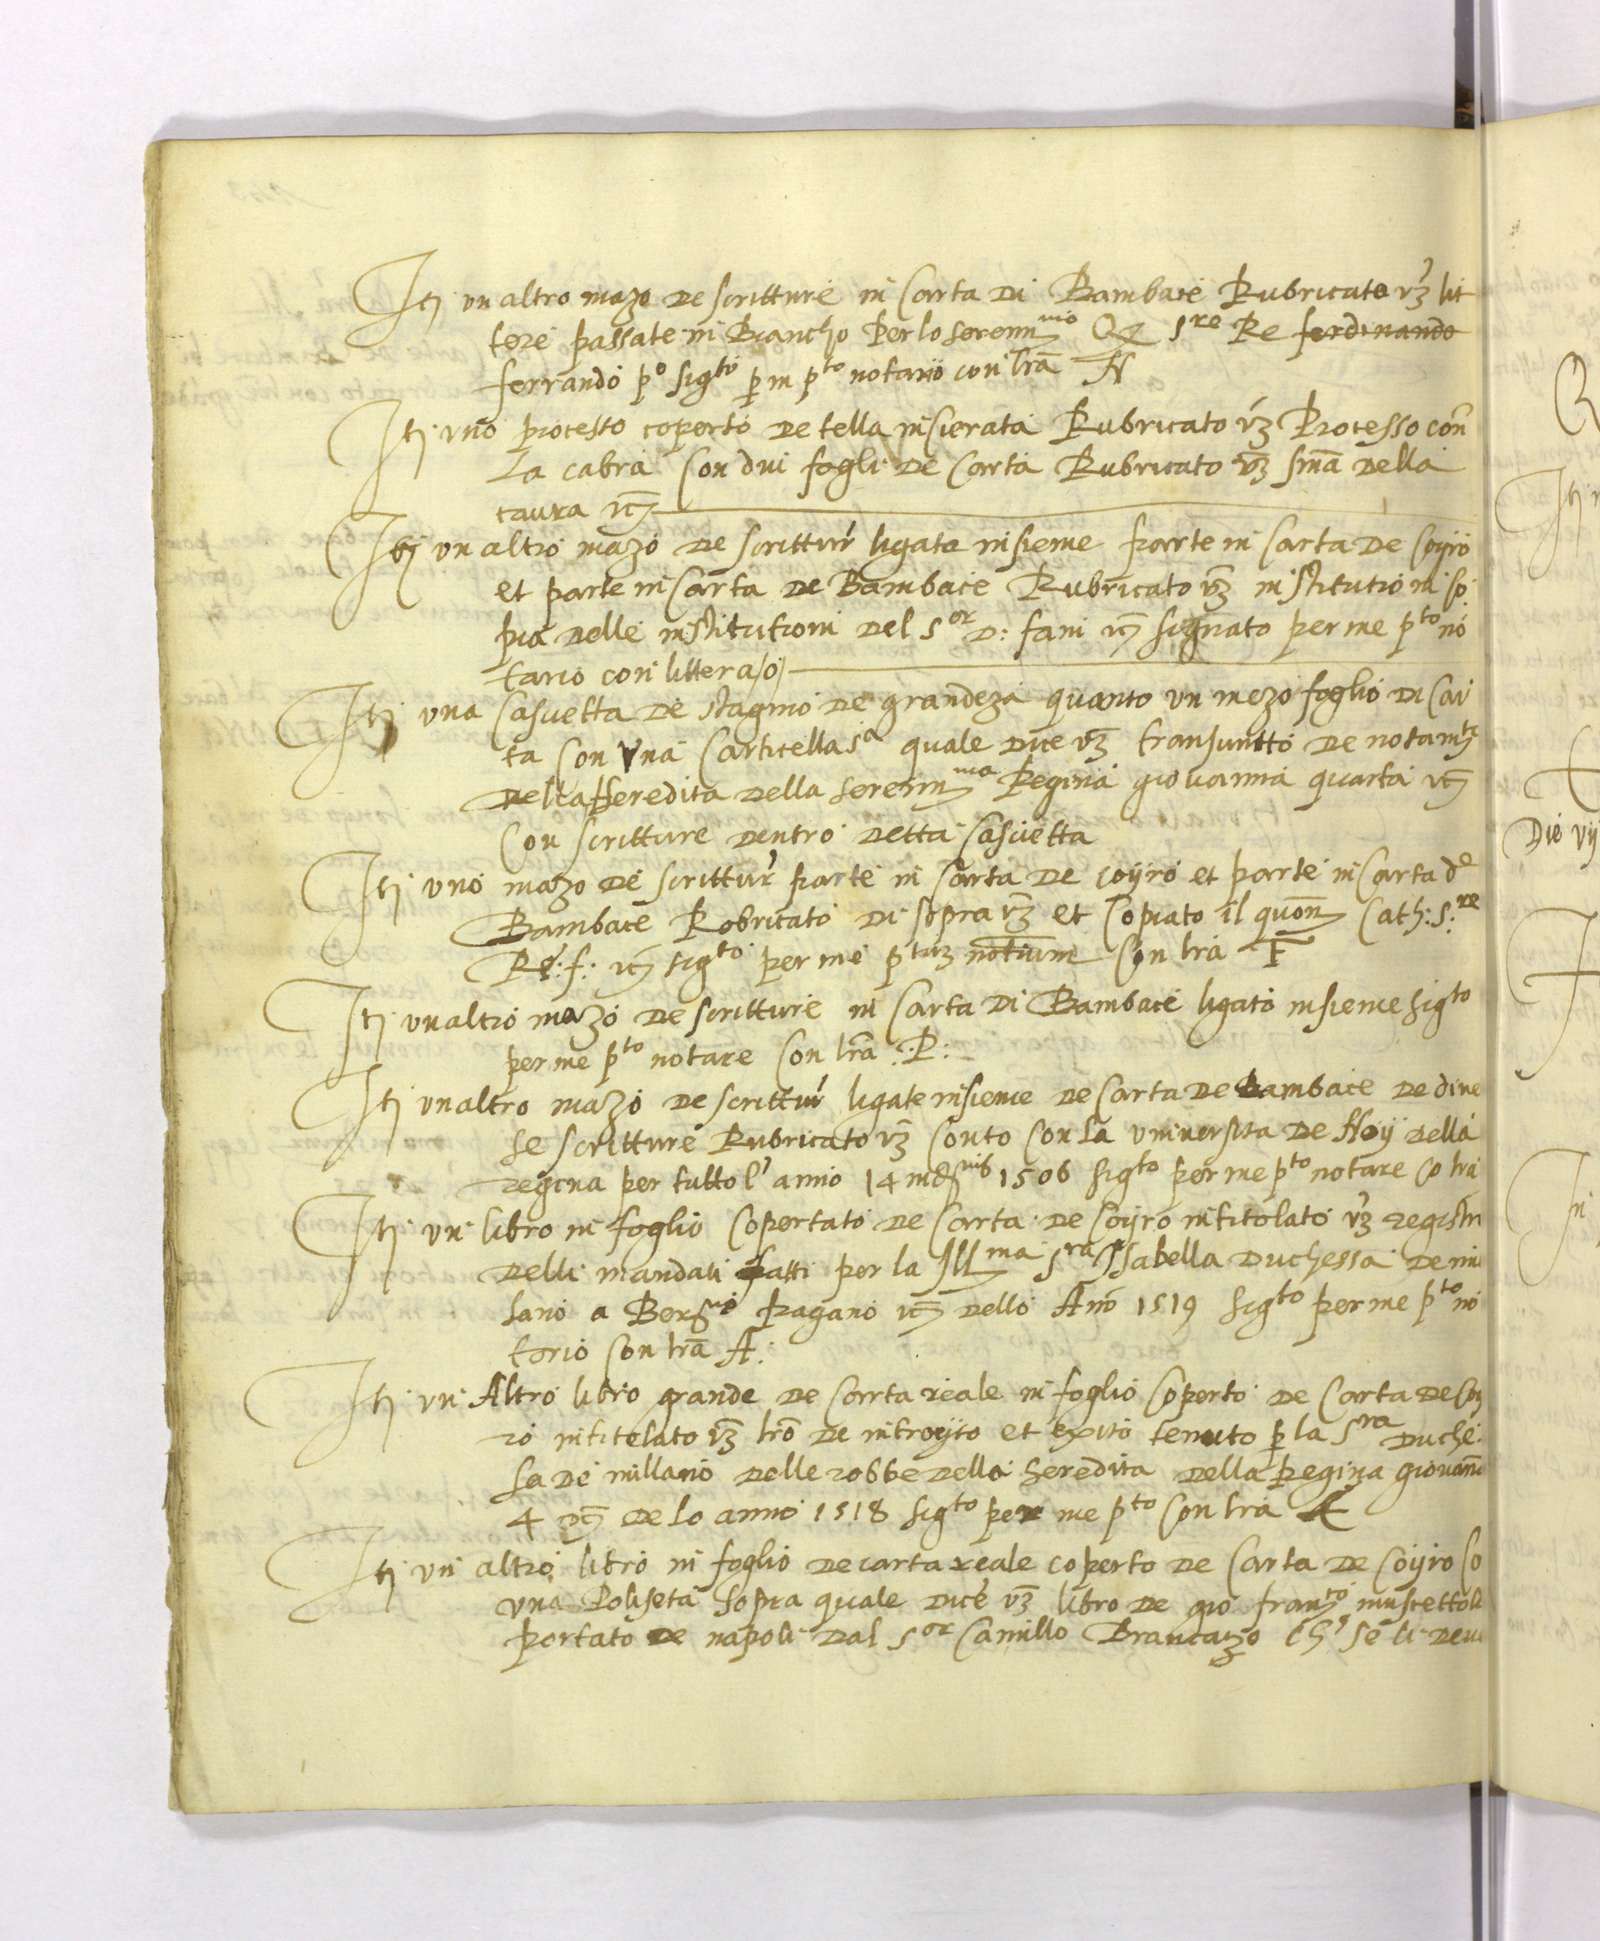 Itē un altro mazo de scritture in Carta di Bambace Rubricato vz lit
tere passate in Biancho per lo serenmo S.re Re ferdinando
ferrando p.o sigto p m pto notario con lrā N
Itē uno processo coperto de tella insierata Rubricato vz Processo con
la cabra Con dui fogli de Carta Rubricato vz sma della
taura
Itē un altro mazo de scrittur ligate insieme parte in Carta de Coyro
et parte in Carta de Bambace Rubricato vz institutioni co
pia delle institutioni del Sor D: signato per me pto no
tario con littera /o/
Itē una Cascetta de stagnio de grandeza quanto un mezo foglio di Car
ta con una Carticella sa quale dice vz transuntto de notamto
della Heredita della serenma Regina giovanna quarta
Con scritture dentro detta Cascetta
Itē uno mazo de scrittur parte in Carta de coyro et parte in Carta de
Bambace Robricato di sopra vz et Copiato il quon Cath: S.re
Re: f: sigto per me Con lra F
Itē un altro mazo de scritture in Carta di Bambace ligato insieme sigto
per me pto notare Con lrā :P:
Itē un altro mazo de scrittur ligate insieme de Carta de Bambace de dive
se scritture Rubricato vz Conto Con la universita de Noij della
regina per tutto l'anno 14 indnis 1506 sigto per me pto notare Co lra
Itē un libro in foglio Copertato de Carta de Coyro intitolato vz registri
delli mandati fatti per la Illma Sra Isabella Duchessa de mi
lano a pagano dello Anno 1519 sigto per me pto no
tario Con lrā A:
Itē un Altro libro grande de Carta reale in foglio Coperto de Carta de Coy
ro intitelato vz lro de introyto et exito tenuto p la Sra Duche
sa de millano delle robbe della heredita della Regina giovanna
4 de lo anno 1518 sigto per me pto Con lra
Itē un altro libro in foglio de carta reale coperto de Carta de Coiyro Co
una Poliseta sopra quale dice vz libro de gio franco muscettola
portato de napoli dal Sor Camillo Brancazo Ch' se li deve
Die vij